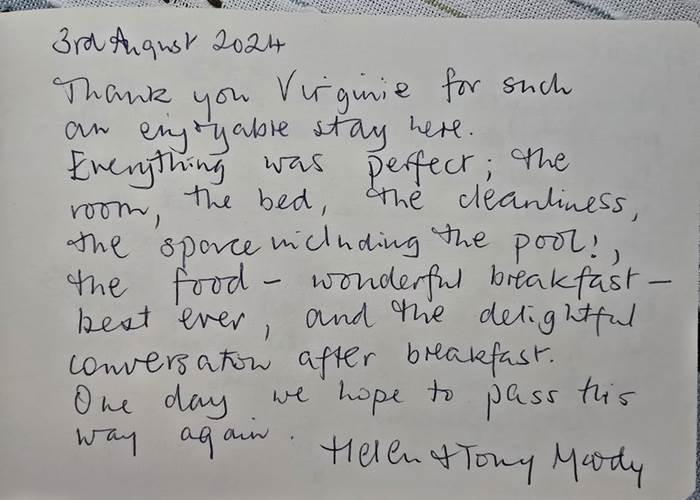 3rd August 2024
Thank you Virginie for such
an enjoyable stay here.
Everything was perfect; the
room, the bed, the cleanliness,
the space including the pool!,
the food - wonderful breakfast -
best ever, and the delightful
conversation after breakfast.
One day we hope to pass this
way again.
Helen & Tony Moody